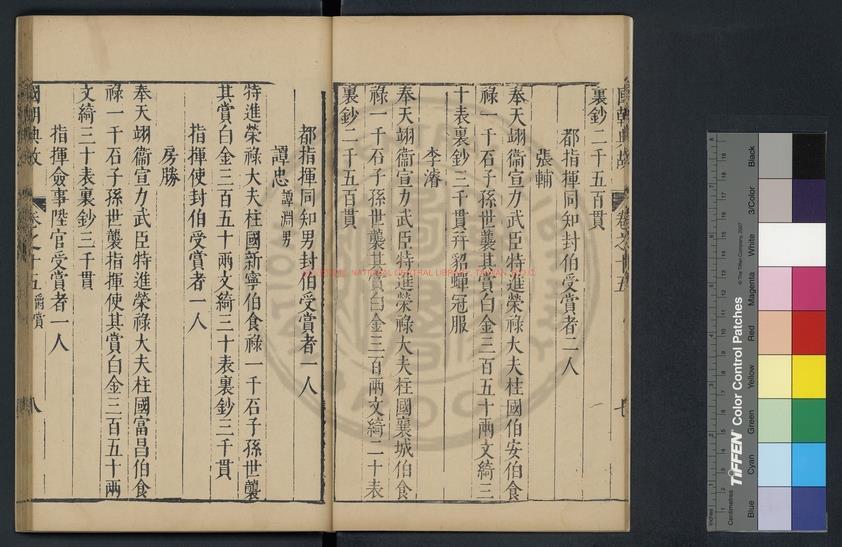 國朝典故 卷之十五 七
裏鈔二千五百貫
都指揮同知封伯受賞者二人
張輔
奉天翊衞宣力武臣特進榮祿大夫柱國伯安伯食
祿一千石子孫世襲其賞白金三百五十兩文綺三
十表裏鈔三千貫并貂蟬冠服
李濬
奉天翊衞宣力武臣特進榮祿大夫柱國襄城伯食
祿一千石子孫世襲其賞白金三百兩文綺二十表
裏鈔二千五百貫
都指揮同知男封伯受賞者一人
譚忠 譚淵男
特進榮祿大夫柱國新寧伯食祿一千石子孫世襲
其賞白金三百五十兩文綺三十表裏鈔三千貫
指揮使封伯受賞者一人
房勝
奉天翊衞宣力武臣特進榮祿大夫柱國富昌伯食
祿一千石子孫世襲指揮使其賞白金三百五十兩
文綺三十表裏鈔三千貫
指揮僉事陞官受賞者一人
國朝典故 卷之十五 稱賞 八
TIFFEN Color Control Patches
© The Tiffen Company, 2007
Centimetres
Inches
Blue
Cyan
Green
Yellow
Red
Magenta
White
3/Color
Black